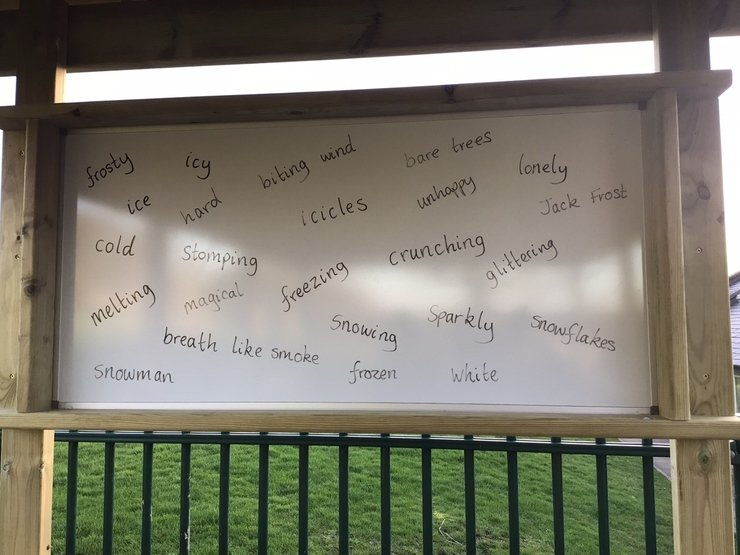 frosty icy biting wind bare trees lonely
ice hard icicles unhappy Jack Frost
cold Stomping crunching glittering
melting magical freezing Snowing Sparkly Snowflakes
breath like smoke
Snowman frozen White